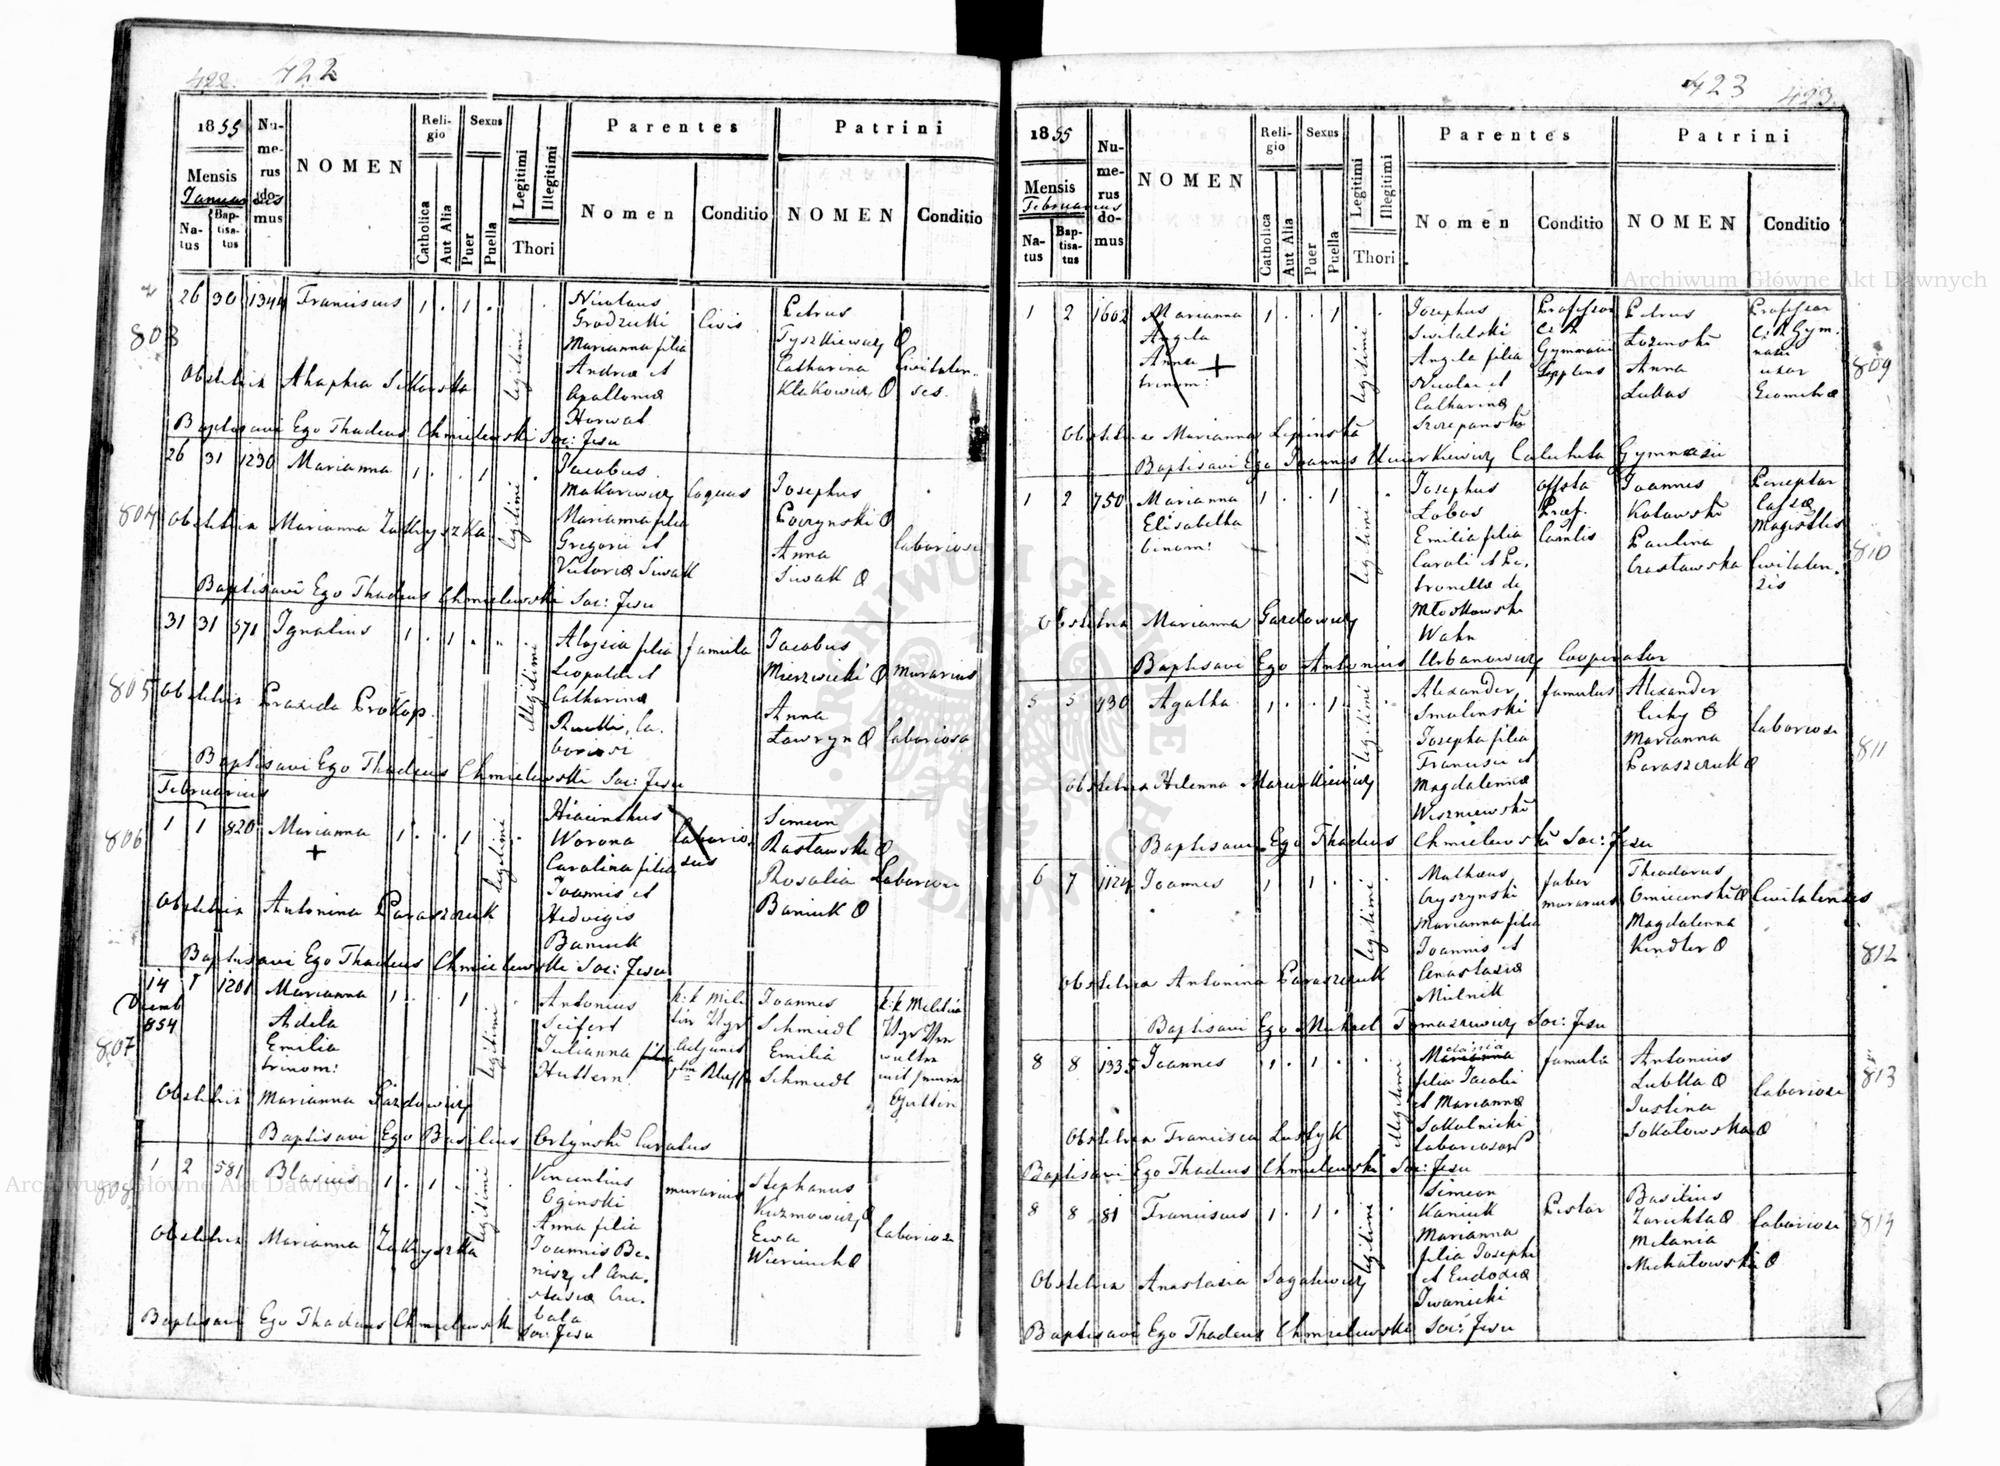 422. 422
1855
Mensis
Januarius
Natus
Baptisatus
Numerus domus
NOMEN
Religio
Catholica
Aut Alia
Sexus
Puer
Puella
Legitimi
Illegitimi
Thori
Parentes
Nomen
Conditio
Patrini
NOMEN
Conditio
803
26 30 1344 Franciscus 1 . 1 . legitimi .
Nicolaus
Grodzicki
Marianna filia
Andreæ et
Apolloniæ
Horwat
Civis
Petrus
Tyszkiewicz
Catharina
Civitatenses
Obstetrix Ahaphia Sikorska
Baptisavi Ego Thadeus Chmielewski Soc: Jesu
804
26 31 1230 Marianna 1 . . 1 legitimi .
Jacobus
Makarewicz
Marianna filia
Gregorii et
Victoriæ Siwak
Coquus
Josephus
Anna
Siwak
laboriosi
Obstetrix Marianna Zakryszka
Baptisavi Ego Thadeus Chmielewski Soc: Jesu
805
31 31 571 Ignatius 1 . 1 illegitimi
Aloysia filia
Leopoldi et
Catharinæ
famula
Jacobus
Mierzwicki
Anna
Ławryn
murarius
laboriosa
Obstetrix Praxeda Prokop.
Baptisavi Ego Thadeus Chmielewski Soc: Jesu
Februarius
806
1 1 820 Marianna 1 . . 1 legitimi .
+
Hiacinthus
Worona
Carolina filia
Joannis et
Hedvigis
Baniuk
laboriosus
Simeon
Rastawski
Rosalia
Baniuk
Laboriosi
Obstetrix Antonina Paraszczuk
Baptisavi Ego Thadeus Chmielewski Soc: Jesu
807
14 1 1201 Marianna 1 . . 1 legitimi .
Decemb
854
Adela
Emilia
trinom:
Antonius
Seifert
Julianna filia
Huttern
Joannes
Schmiedl
Emilia
Schmiedl
Obstetrix Marianna Gazdowicz
Baptisavi Ego Basilius Ortyński Curatus
808
1 2 581 Blasius 1 . 1 . legitimi .
Vincentius
Oginski
Anna filia
Joannis Be-
nisz et Ana-
stasiæ
murarius
Stephanus
Kuzmowicz
Ewa
laboriosi
Obstetrix Marianna Zakryszka
Baptisavi Ego Thadeus Chmielewski Soc: Jesu
423 423.
1855
Mensis
Februarius
Natus
Baptisatus
Numerus domus
NOMEN
Religio
Catholica
Aut Alia
Sexus
Puer
Puella
Legitimi
Illegitimi
Thori
Parentes
Nomen
Conditio
Patrini
NOMEN
Conditio
809
1 2 1602 Marianna 1 . . 1 legitimi .
Angela
Anna +
trinom:
Josephus
Switalski
Angela filia
Nicolai et
Catharinæ
Szczepanski
Professor
Gymnasii
Petrus
Łozinski
Anna
Lukas
Professor
Gym-
nasii
uxor
Geometræ
Obstetrix Marianna Lipinska
Baptisavi Ego Joannes Gymnasii
810
1 2 750 Marianna 1 . . 1 legitimi .
Elisabetha
binom:
Josephus
Łobos
Emilia filia
Caroli et Pe-
tronellæ de
Młoskowski
Wahn
Joannes
Kotowski
Paulina
Perceptor
Cassæ
Civitaten-
sis
Obstetrix Marianna Gazdowicz
Baptisavi Ego Antonius Urbanowicz Cooperator
811
5 5 930 Agatha 1 . . 1 legitimi .
Alexander
Smolinski
Josepha filia
Francisci et
Magdalennæ
Wiszniewski
famulus
Alexander
Cichy
Marianna
Paraszczuk
laboriosi
Obstetrix Helenna Mazurkiewicz
Baptisavi Ego Thadeus Chmielewski Soc: Jesu
812
6 7 1124 Joannes 1 . 1 . legitimi .
Mathæus
Cryszynski
Marianna filia
Joannis et
Anastasiæ
Mielnik
faber
murarius
Theodorus
Magdalenna
Kindler
Civitatenses
Obstetrix Antonina Paraszczuk
Baptisavi Ego Michael Tomaszewicz Soc: Jesu
813
8 8 1335 Joannes 1 . 1 . illegitimi
Marianna
filia Jacobi
et Mariannæ
Sokolnicki
famula
Antonius
Lubella
Justina
Sokołowska
laboriosi
Obstetrix Francisca Lustyk
Baptisavi Ego Thadeus Chmielewski Soc: Jesu
814
8 8 81 Franciscus 1 . 1 . legitimi .
Simeon
Kaniuk
Marianna
filia Josephi
et Eudoxiæ
Iwanicki
Pistor
Basilius
Zarichta
Melania
Michałowski
laboriosi
Obstetrix Anastasia Sagalewicz
Baptisavi Ego Thadeus Chmielewski Soc: Jesu
Archiwum Główne Akt Dawnych
Archiwum Główne Akt Dawnych
ARCHIWUM GŁÓWNE AKT DAWNYCH